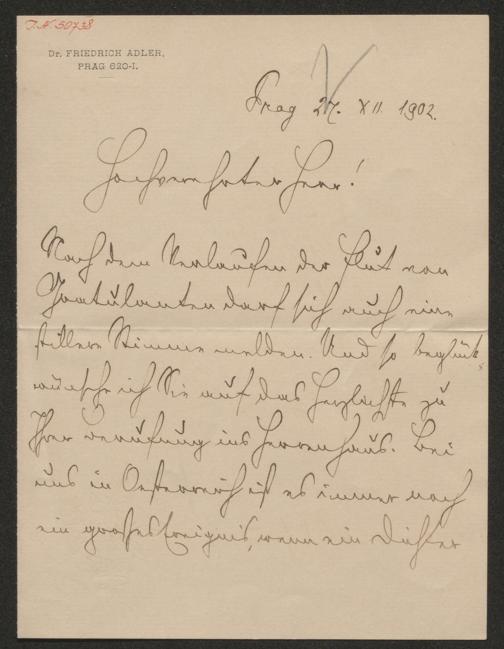 I.N. 50738
Dr. FRIEDRICH ADLER,
PRAG 620-I.
Prag 27. XII. 1902.
Hochverehrter Herr!
Nach dem Verlaufen der Flut von
Gratulanten darf sich auch eine
stillere Stimme melden. Und so beglück-
wünsche ich Sie auf das Herzlichste zu
Ihrer Berufung ins Herrenhaus. Bei
uns in Oesterreich ist es immer noch
ein großes Ereignis, wenn ein Dichter